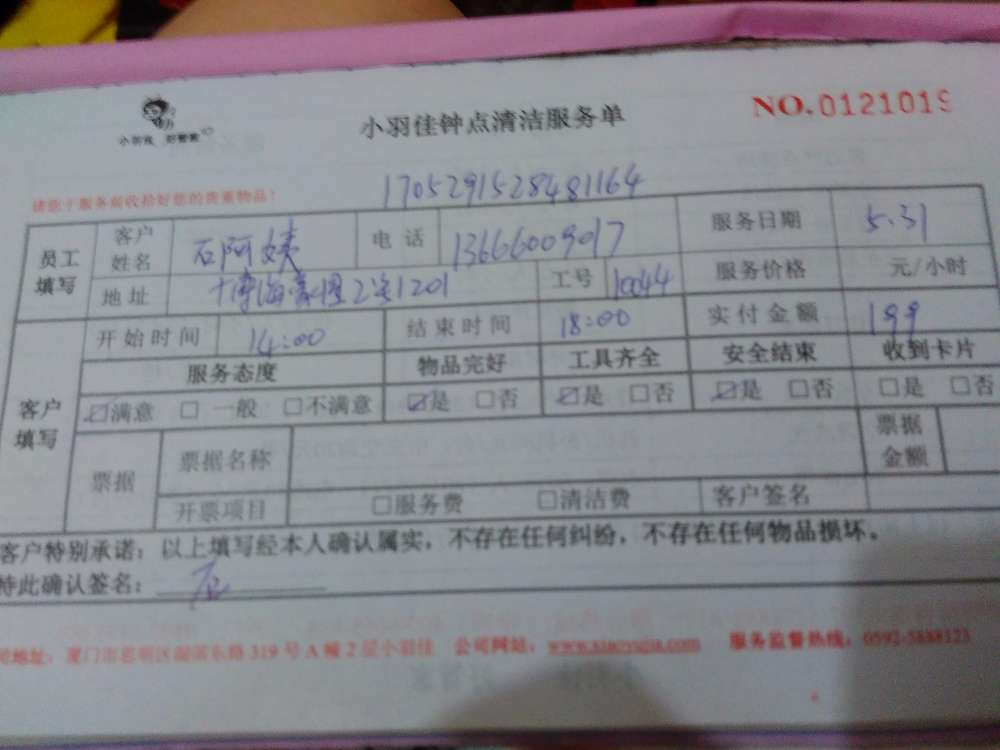 小羽佳 好管家
小羽佳钟点清洁服务单
NO.0121019
请您于服务前收拾好您的贵重物品!
1705291528481164
员工填写 客户姓名 石阿姨 电话 13666009017 服务日期 5.31
地址 2室1201 工号 10044 服务价格 元/小时
客户填写 开始时间 14:00 结束时间 18:00 实付金额 199
服务态度 物品完好 工具齐全 安全结束 收到卡片
☑满意 □一般 □不满意 ☑是 □否 ☑是 □否 ☑是 □否 □是 □否
票据 票据名称 票据金额
开票项目 □服务费 □清洁费 客户签名
客户特别承诺：以上填写经本人确认属实，不存在任何纠纷，不存在任何物品损坏。
特此确认签名：石
司地址：厦门市思明区湖滨东路319号A幢2层小羽佳 公司网站： 服务监督热线：0592-5888123